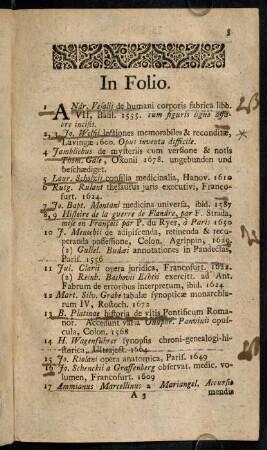 3
In Folio.
1 ANdr. Vesalii de humani corporis fabrica libb.
VII, Basil. 1555. cum figuris ligno affa-
bre incisis.
2, 3 Jo. Wolfii lectiones memorabiles & reconditæ,
Lavingæ 1600. Opus inventu difficile.
4 Jamblichus de mysteriis cum versione & notis
Thom. Gale, Oxonii 1678. ungebunden und
beschædiget.
5 Laur. Scholzii consilia medicinalia, Hanov. 1610
6 Rutg. Ruland thesaurus juris executivi, Franco-
furt. 1624.
7 Jo. Bapt. Montani medicina universa, ibid. 1587
8, 9 Histoire de la guerre de Flandre, par F. Strada,
mise en Français par P. du Ryer, à Paris 1650
10 J. Menochii de adipiscenda, retinenda & recu-
peranda possessione, Colon. Agrippin. 1629.
2) Guliel. Budæi annotationes in Pandectas,
Paris. 1556
11 Jul. Clarii opera juridica, Francofurt.
2) Reinh. Bachovii Echtii exercitt. ad Ant.
Fabrum de erroribus interpretum, ibid. 1624
12 Mart. Silv. Grabe tabulæ synopticæ monarchia-
rum IV, Rostoch. 1672
13 B. Platinæ historia de vitis Pontificum Roma-
nor. Accedunt varia Onuphr. Panvinii opus-
cula, Colon. 1568
14 H. Wagenführer synopsis chroni-genealogi-hi-
storica, Ultraject. 1664
15 Jo. Riolani opera anatomica, Paris. 1649
16 Jo. Schenckii a Graffenberg observat. medic. vo-
lumen, Francofurt. 1609
17 Ammianus Marcellinus a Mariangel. Accursio
A 3 mendis